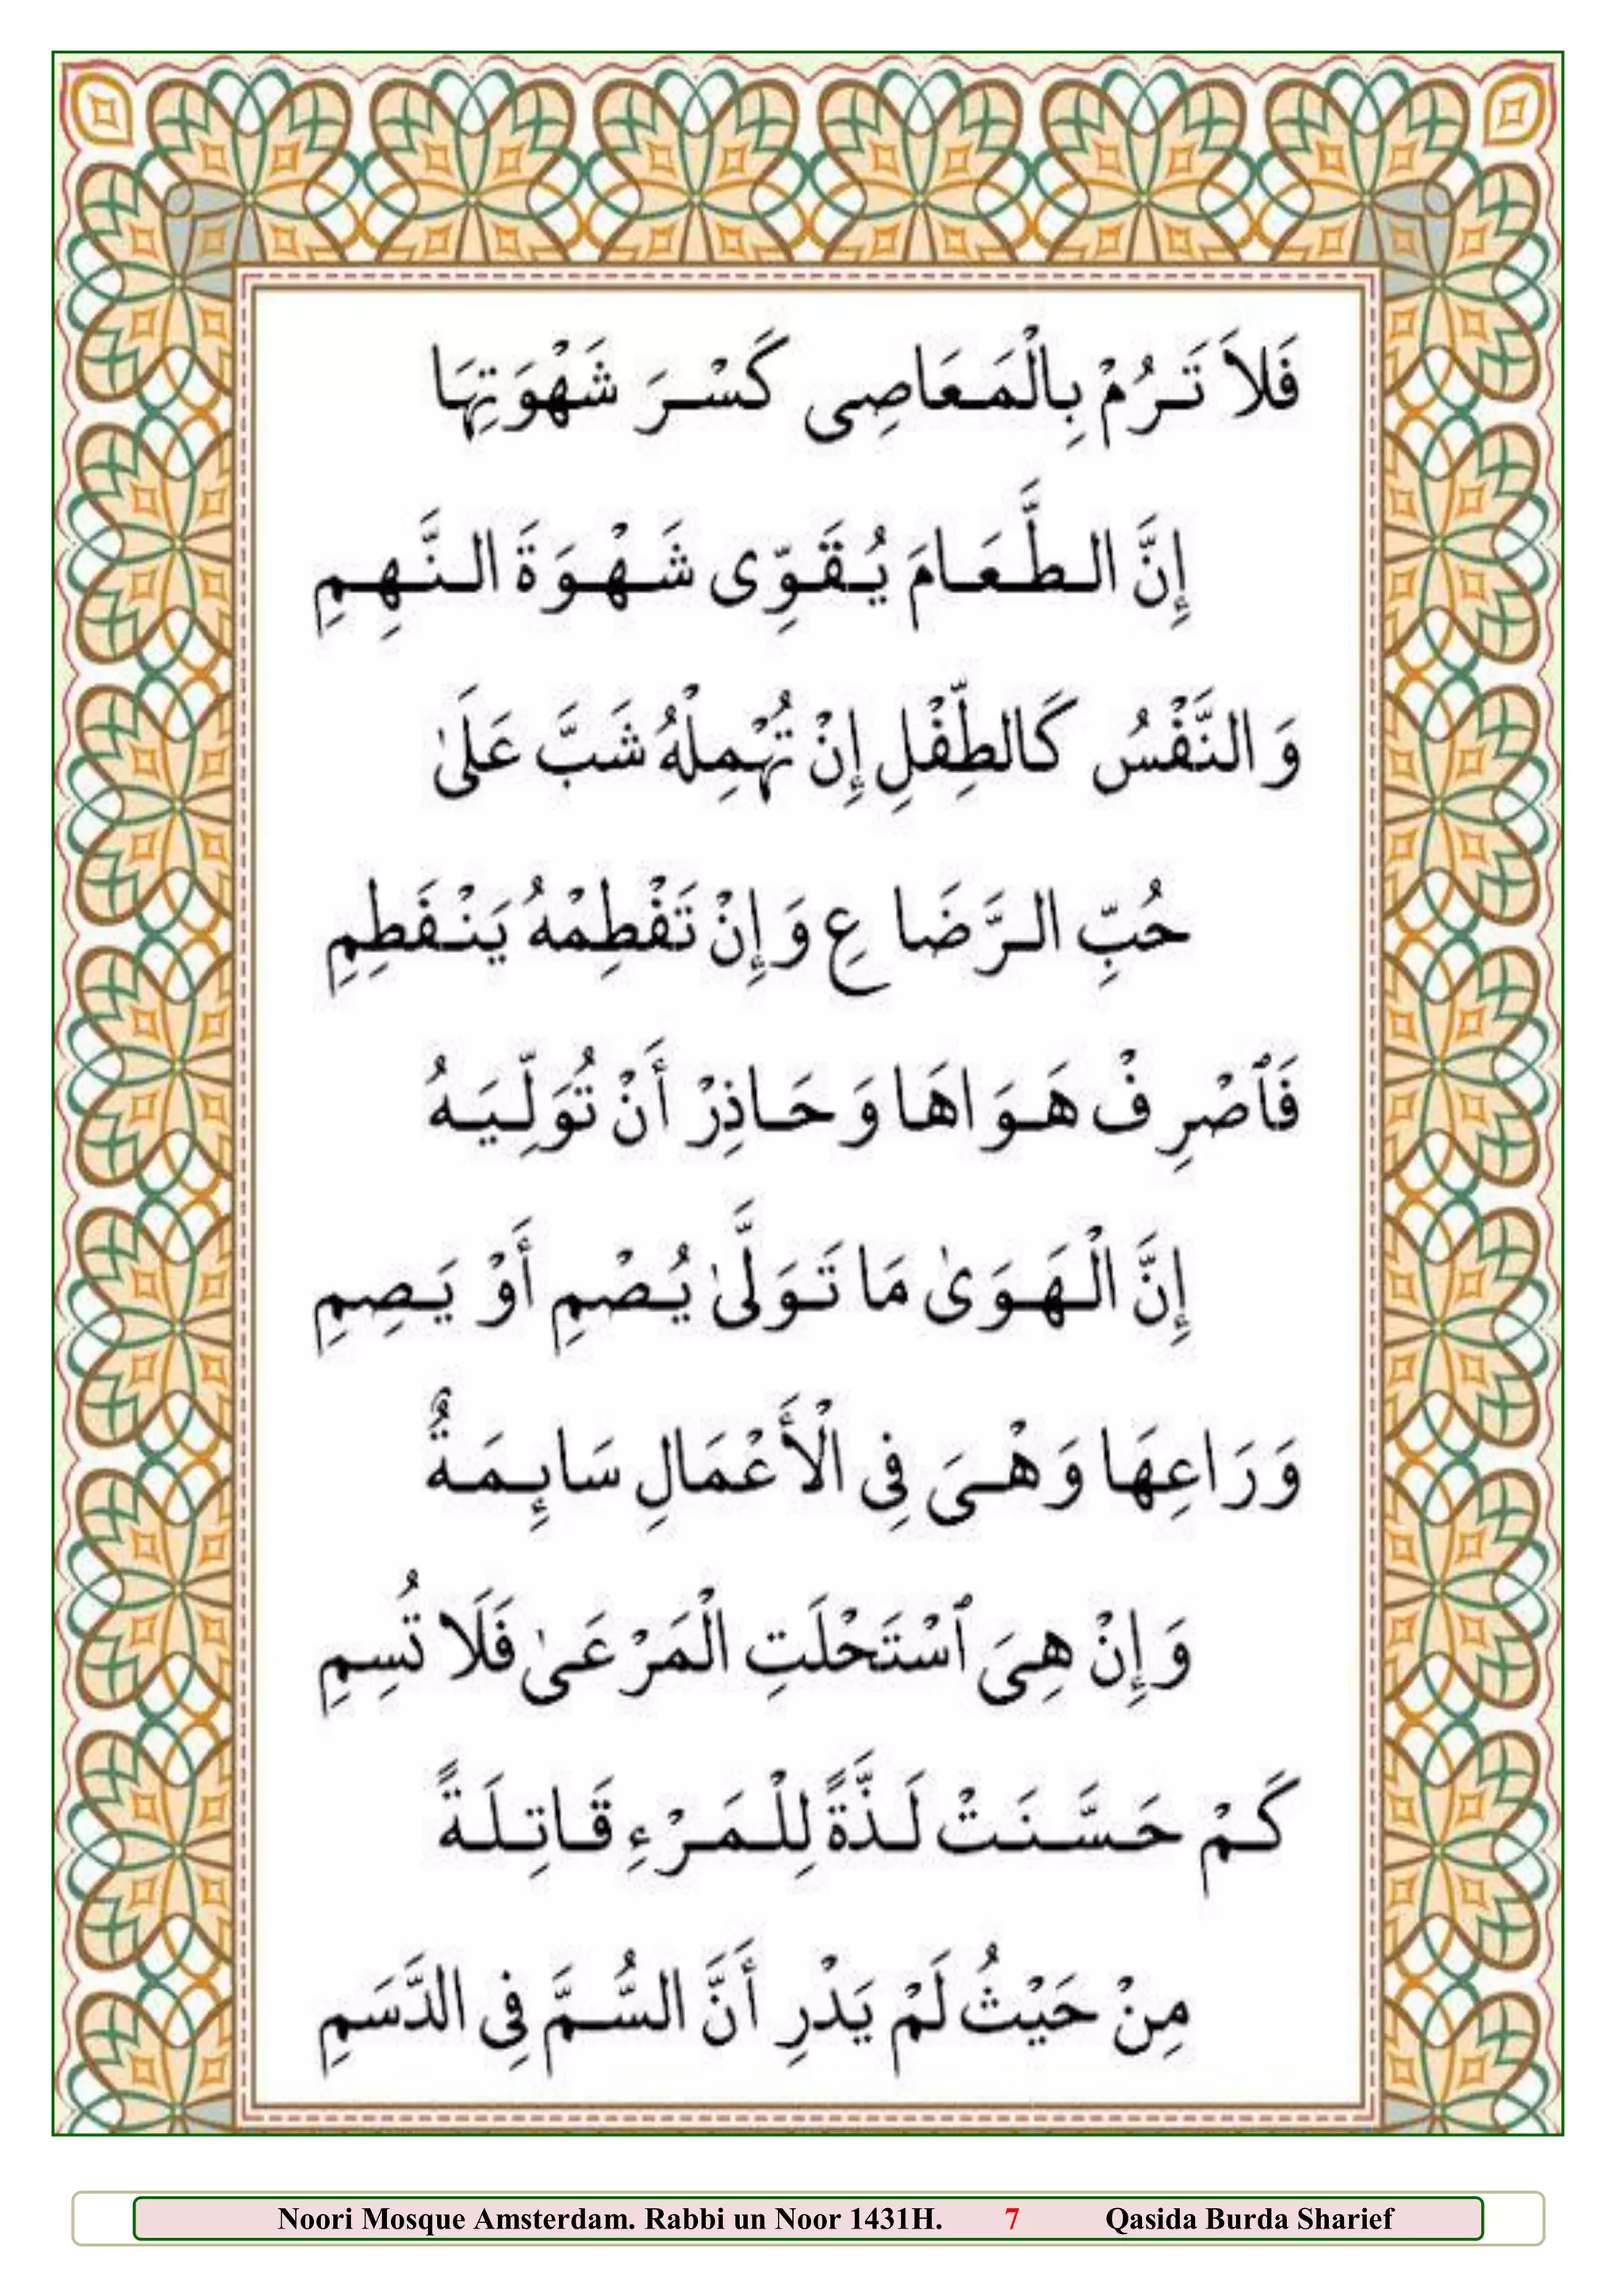 فَلَا تَرُمْ بِالْمَعَاصِى كَسْرَ شَهْوَتِهَا
إِنَّ الطَّعَامَ يُقَوِّى شَهْوَةَ النَّهِمِ
وَالنَّفْسُ كَالطِّفْلِ إِنْ تُهْمِلْهُ شَبَّ عَلَىٰ
حُبِّ الرَّضَاعِ وَإِنْ تَفْطِمْهُ يَنْفَطِمِ
فَٱصْرِفْ هَوَاهَا وَحَاذِرْ أَنْ تُوَلِّيَهُ
إِنَّ الْهَوَىٰ مَا تَوَلَّىٰ يُصْمِ أَوْ يَصِمِ
وَرَاعِهَا وَهْىَ فِى الْأَعْمَالِ سَائِمَةٌ
وَإِنْ هِىَ ٱسْتَحْلَتِ الْمَرْعَىٰ فَلَا تُسِمِ
كَمْ حَسَّنَتْ لَذَّةً لِلْمَرْءِ قَاتِلَةً
مِنْ حَيْثُ لَمْ يَدْرِ أَنَّ السُّمَّ فِى الدَّسَمِ
Noori Mosque Amsterdam. Rabbi un Noor 1431H. 7 Qasida Burda Sharief